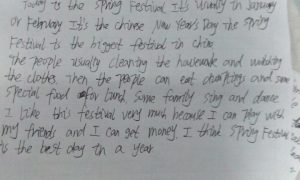 Today is the Spring Festival It's usually in January
or February It's the chinese New Year's Day The Spring
Festival is the biggest festival in china
The people usually cleaning the housework and washing
the clothes. Then the people can eat dumplings and some
special food for lunch Some family sing and dance
I like this festival very much because I can play with
my friends and I can get money. I think Spring Festival
is the best day in a year